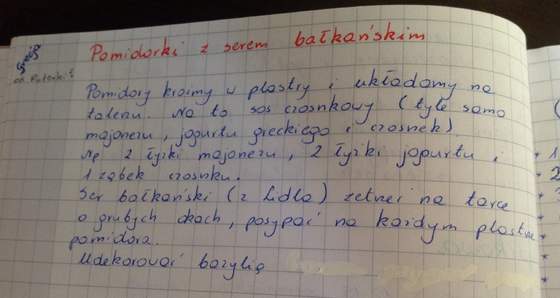 Pomidorki z serem bałkańskim
Pomidory kroimy w plastry i układamy na
talerzu. Na to sos czosnkowy (tyle samo
majonezu, jogurtu greckiego i czosnek)
Np 2 łyżki majonezu, 2 łyżki jogurtu i
1 ząbek czosnku.
Ser bałkański (z Lidla) zetrzeć na tarce
o grubych okach, posypać na każdym plastrze
pomidora.
Udekorować bazylią
1
2